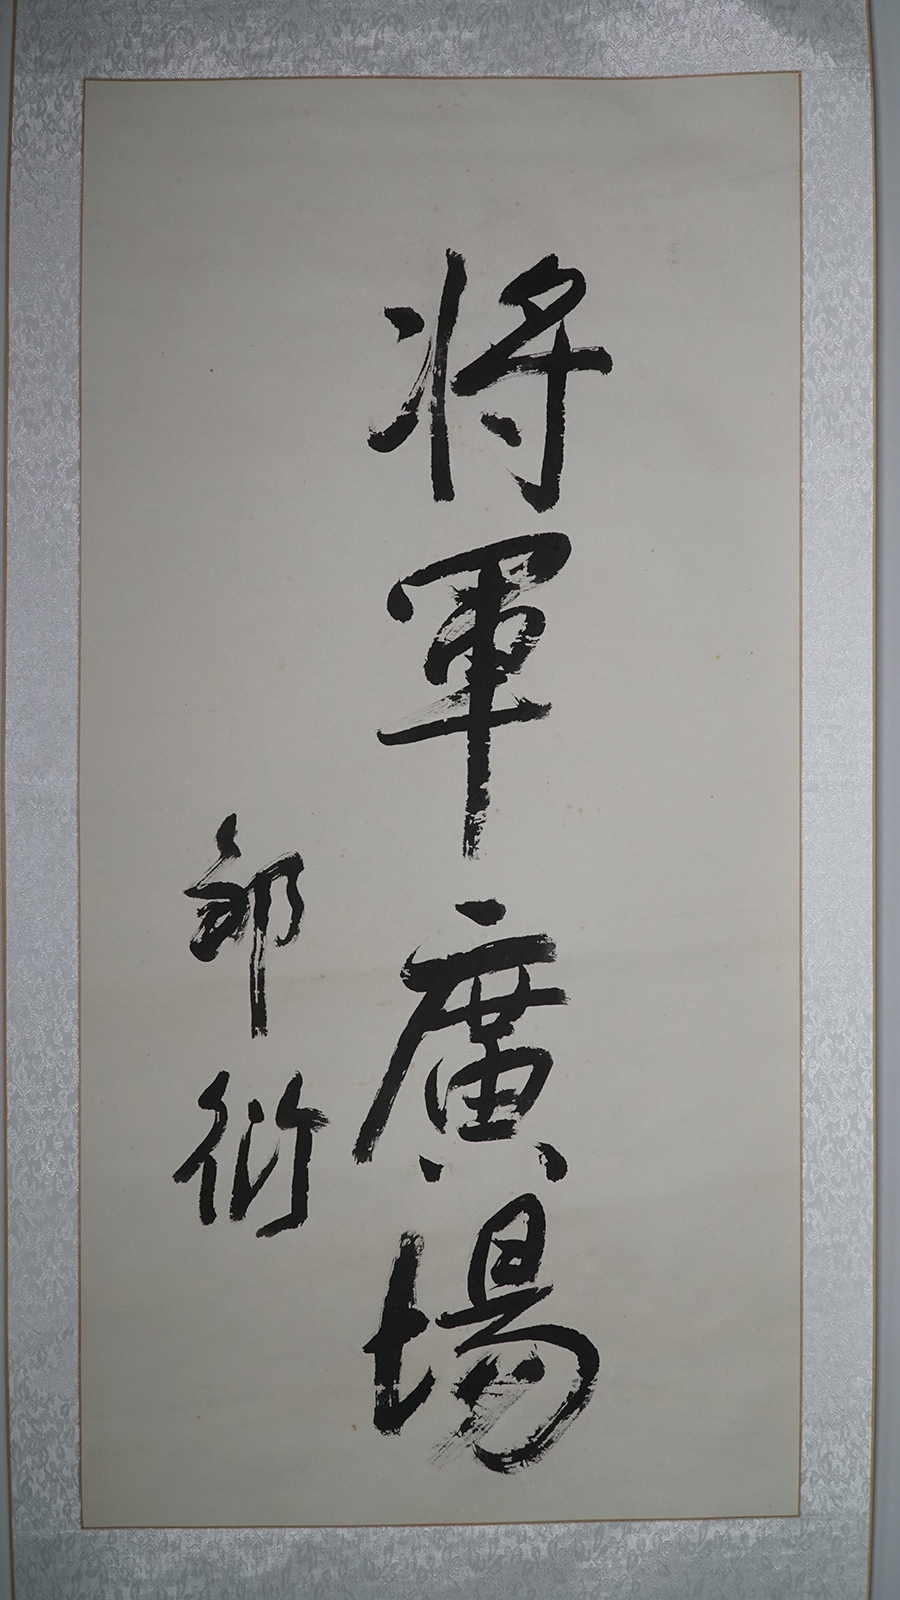 将軍廣場
邹衍